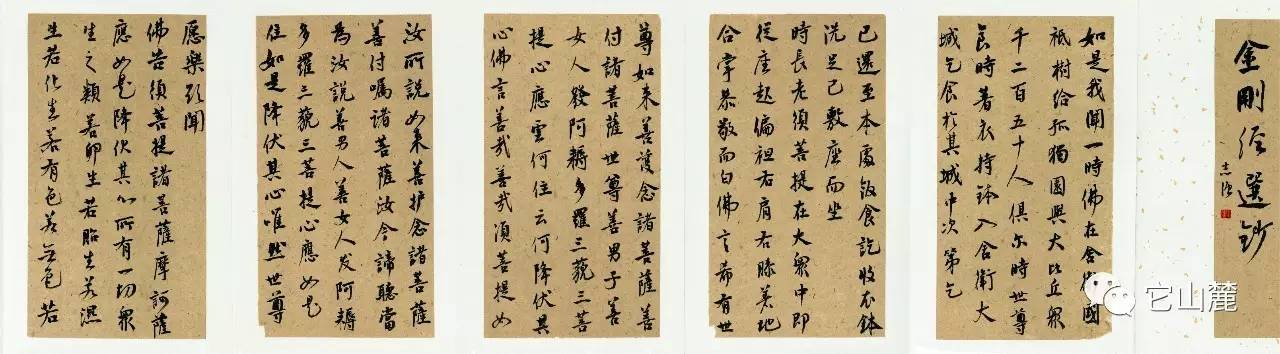 金剛经選鈔
如是我聞一時佛在舍衛國
祇樹給孤獨園與大比丘衆
千二百五十人俱尔時世尊
食時著衣持鉢入舍衛大
城乞食於其城中次第乞
已還至本處飯食訖收衣鉢
洗足已敷座而坐
時長老須菩提在大衆中即
從座起偏袒右肩右膝著地
合掌恭敬而白佛言希有世
尊如来善護念諸菩薩善
付諸菩薩世尊善男子善
女人發阿耨多羅三藐三菩
提心應雲何住云何降伏其
心佛言善哉善哉須菩提如
汝所說如来善护念諸菩薩
善付嘱諸菩薩汝今諦聽當
為汝說善男人善女人发阿耨
多羅三藐三菩提心應如是
住如是降伏其心唯然世尊
愿樂欲聞
佛告須菩提諸菩薩摩訶薩
應如是降伏其心所有一切衆
生之類若卵生若胎生若濕
生若化生若有色若无色若
它山麓